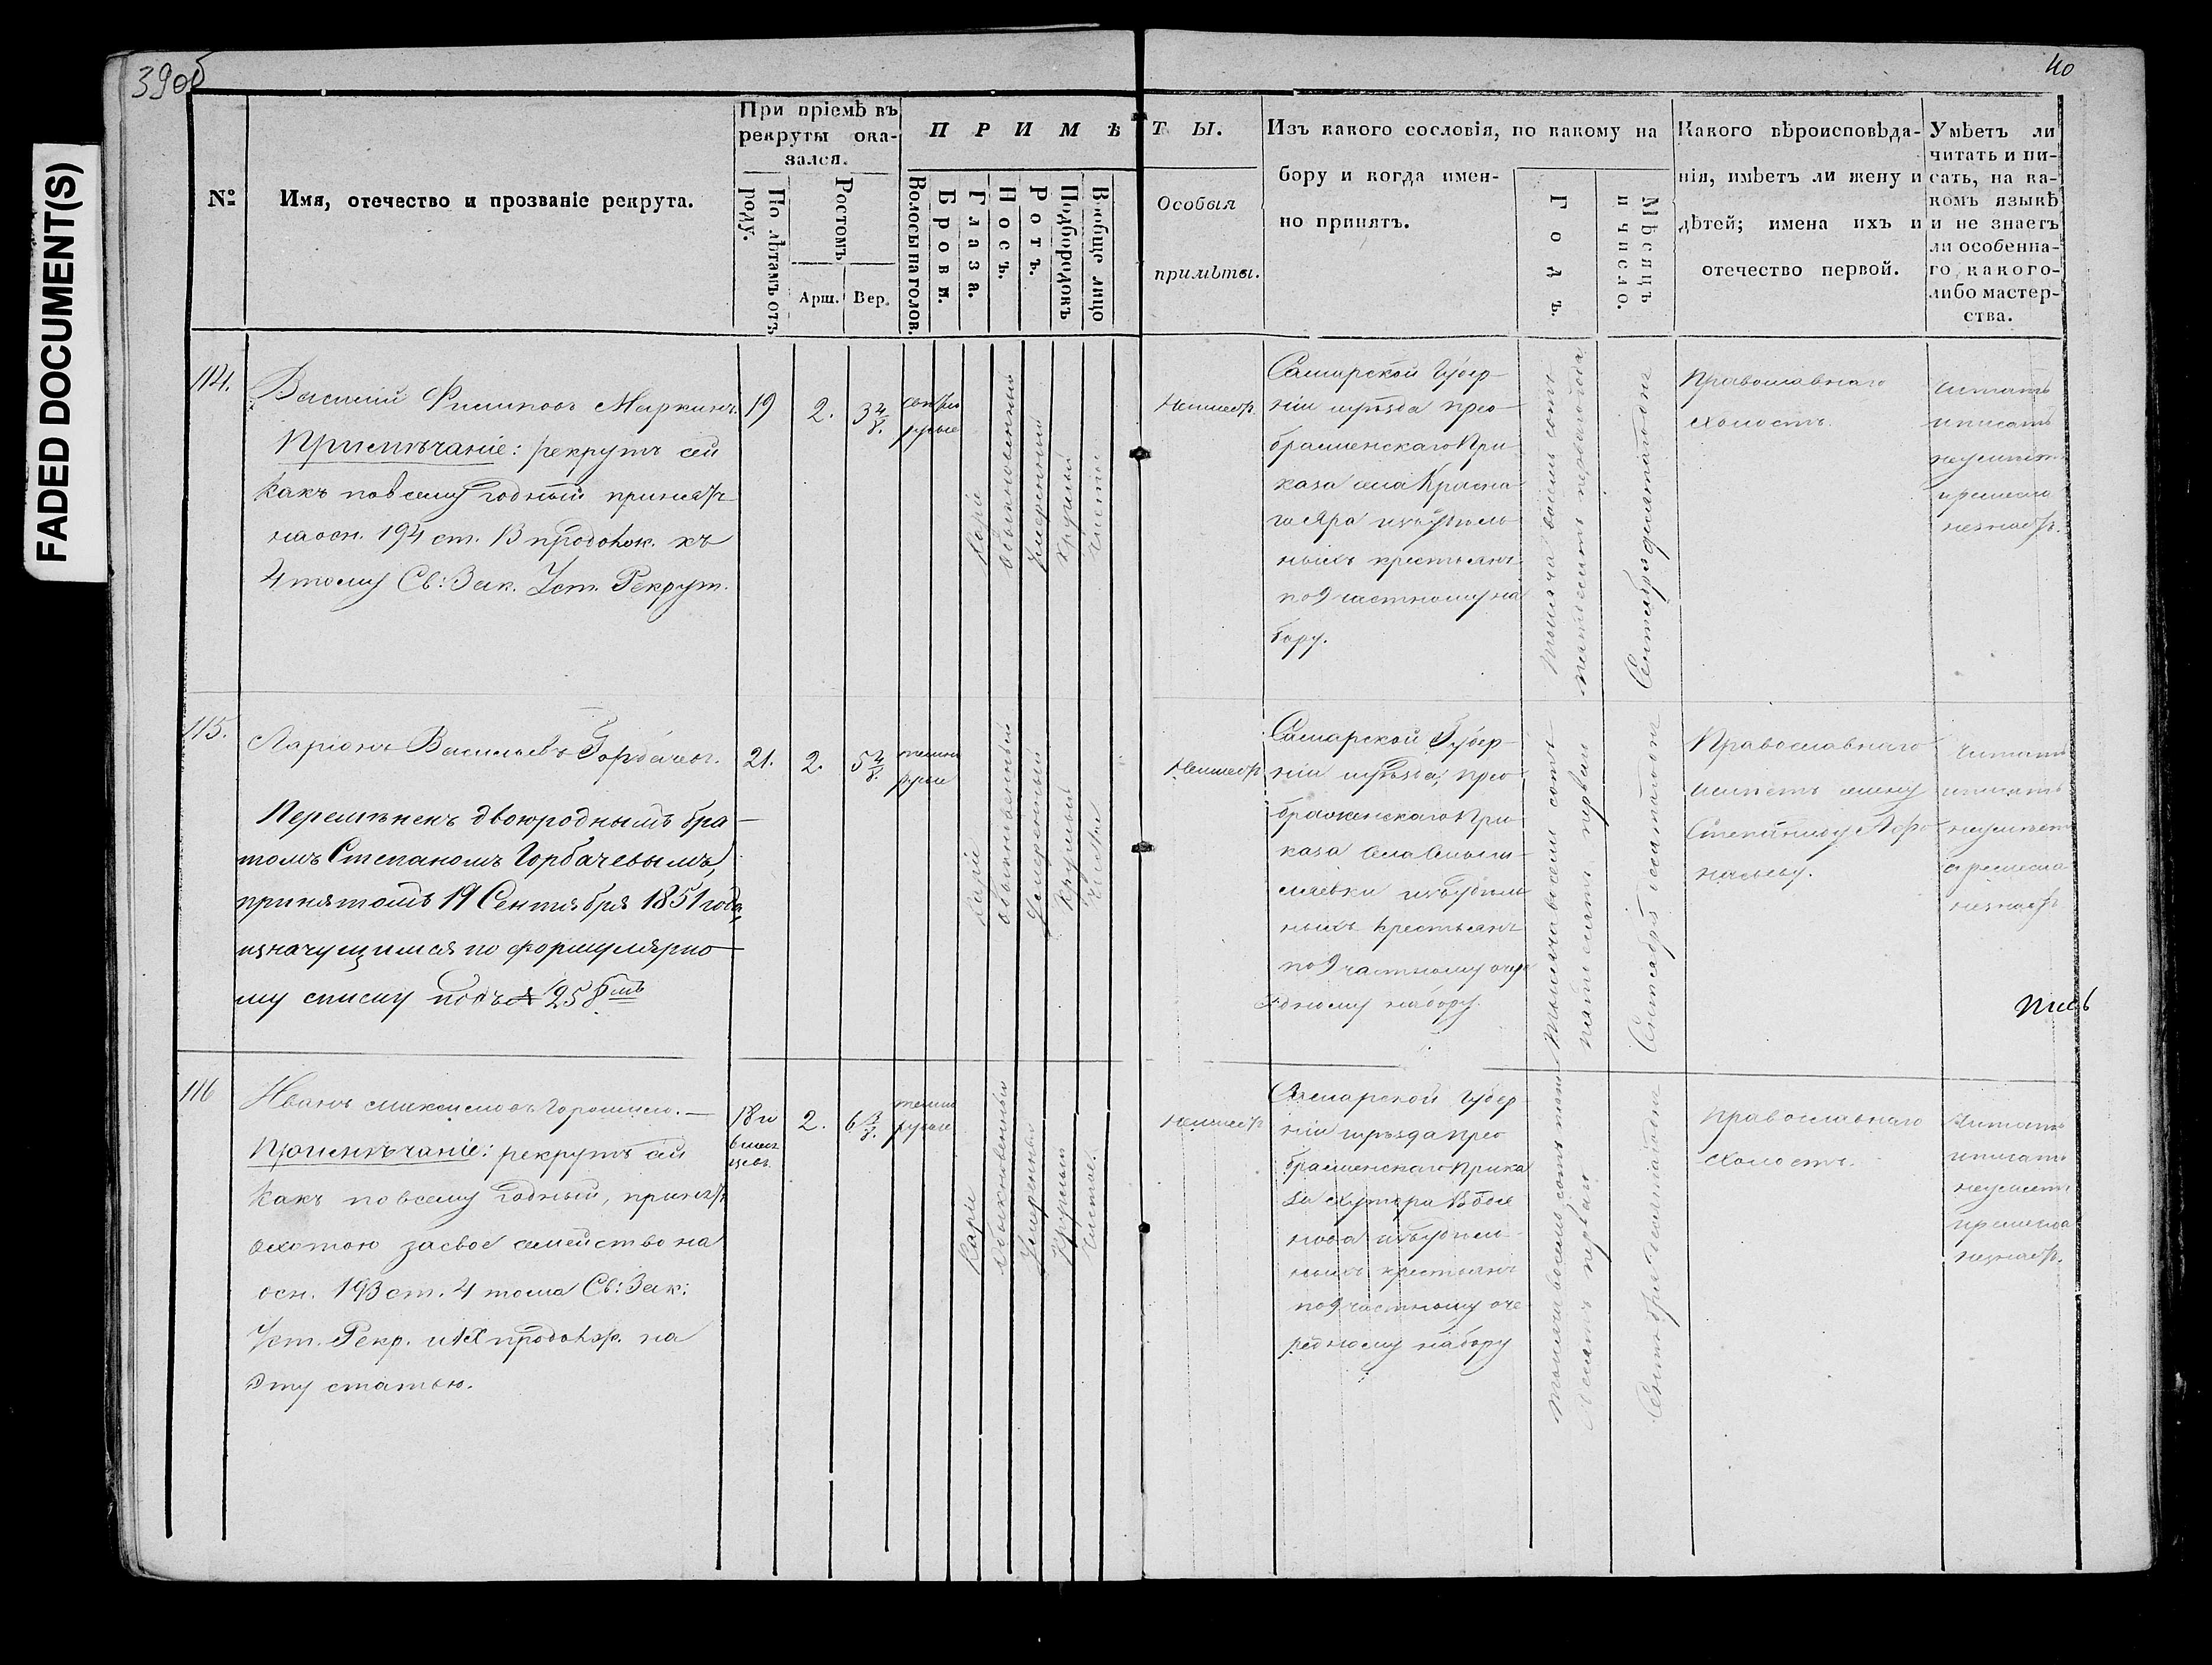 39об
40
FADED DOCUMENT(S)
№
Имя, отечество и прозваніе рекрута.
При пріемѣ въ
рекруты ока-
зался.
По лѣтамъ отъ
роду.
Ростомъ
Арш.
Вер.
ПРИМѢТЫ.
Волосы на голов.
Брови.
Глаза.
Носъ.
Ротъ.
Подбородокъ
Вообще лицо
Особыя
примѣты.
Изъ какого сословія, по какому на
бору и когда имен-
но принятъ.
Годъ.
Мѣсяцъ
и число.
Какого вѣроисповѣда-
нія, имѣетъ ли жену и
дѣтей; имена ихъ и
отечество первой.
Умѣетъ ли
читать и пи-
сать, на ка-
комъ языкѣ
и не знаетъ
ли особенна-
го какого-
либо мастер-
ства.
114.
Василій Филиповъ Маркинъ.
Примѣчаніе: рекрутъ сей
какъ повсему годный принятъ
на осн. 194 ст. 13 продолж. къ
4 тому Св: Зак. Уст. Рекрут.
19
2.
3 4/8.
русые
Каріи
Обыкновенный
Умеренный
Круглый
Чистое
Неимеетъ
Самарской Губер-
ніи уѣзда прео-
браженскаго При-
каза села Красна-
го Яра изъ удѣль-
ныхъ крестьянъ
по 9 частному на
бору.
Тысяча восемь сотъ
пятьдесятъ перваго года
Сентября десятаго дня
Православнаго
холостъ.
Читать
и писать
неумѣетъ
и ремесла
незнаетъ.
115.
Ларіонъ Васильевъ Горбачевъ.
Перемѣненъ двоюроднымъ бра-
томъ Степаномъ Горбачевымъ,
принятомъ 19 Сентября 1851 года,
изначущимся по формулярно-
му списку подъ № 258мъ
21.
2.
5 4/8.
темно
русые
Каріи
Обыкновенный
Умеренный
Круглый
Чистое
Неимеетъ
Самарской Губер-
ніи уѣзда, прео-
браженскаго При-
каза села
изъ удѣль-
ныхъ крестьянъ
по 9 частному оче-
редному набору.
Тысяча восемь сотъ
пятьдесятъ перваго
Сентября десятаго дня
Православнаго
имѣетъ жену
Степаниду
Читать
и писать
неумѣетъ
и ремесла
незнаетъ
116
Иванъ Максимовъ
Примѣчаніе: рекрутъ сей
какъ повсему годный, принятъ
охотою за свое семейство на
осн. 193 ст. 4 тома Св: Зак:
Уст. Рекр. и продолж. на
эту статью.
18 и
6 меся
цевъ.
2.
6
темно
русые
Каріи
Обыкновенный
Умеренный
Круглый
Чистое.
Неимеетъ
Самарской Губер-
ніи уѣзда прео
браженскаго Прика
за хутора
изъ удѣль-
ныхъ крестьянъ
по 9 частному оче
редному набору
Тысяча восемь сотъ
перваго
Сентября десятаго дня
Православнаго
холостъ.
Читать
и писать
неумѣетъ
и ремесла
незнаетъ.